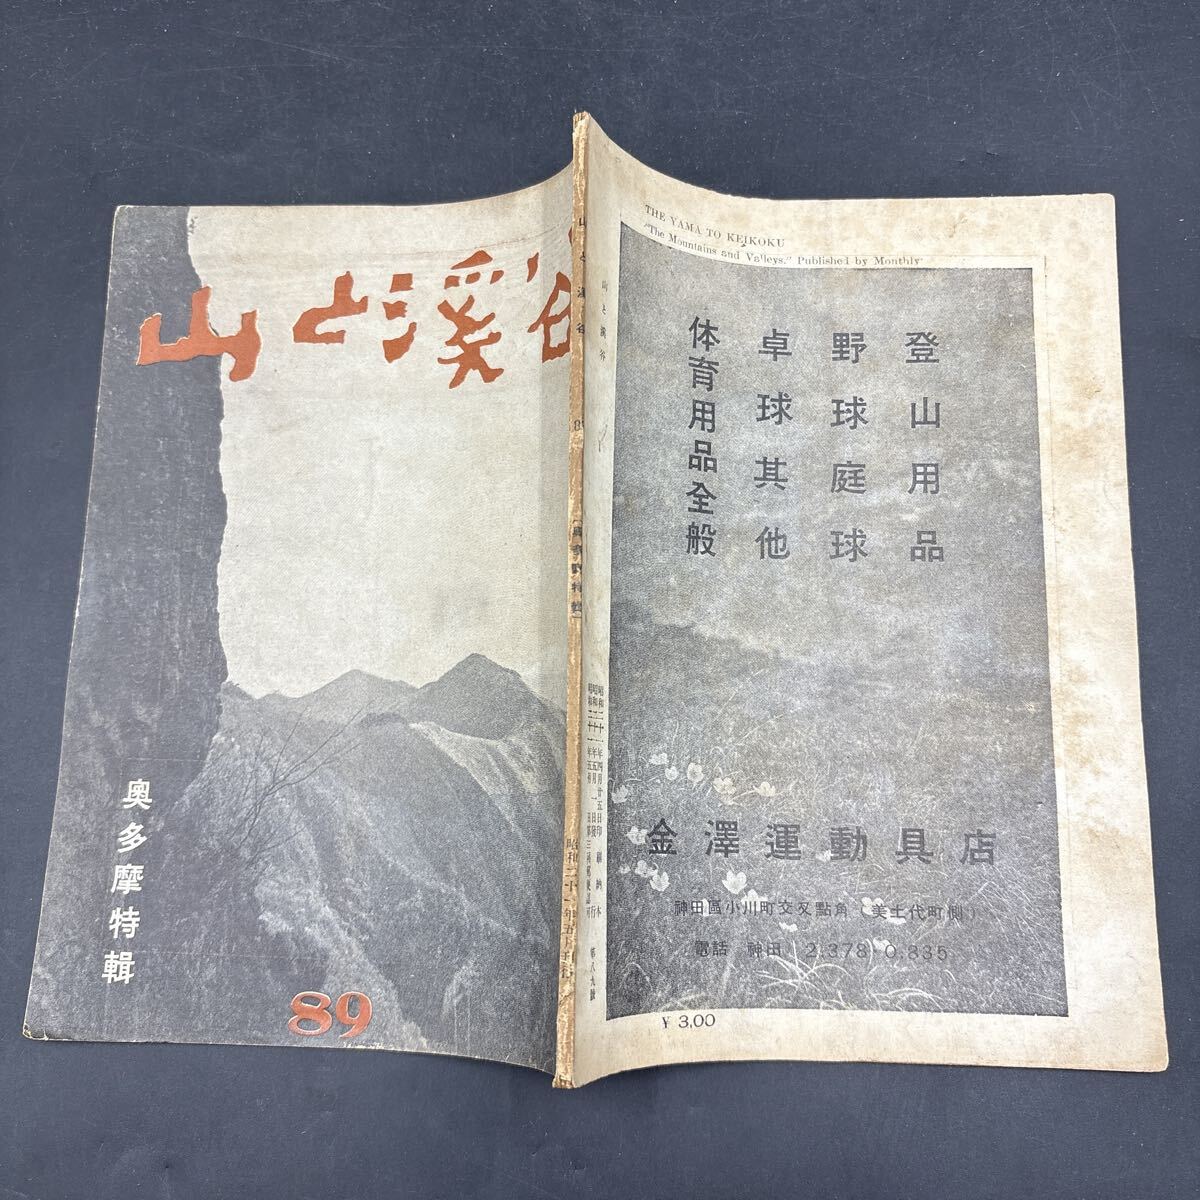 山と溪谷
奥多摩特輯
89
山と溪谷
89
【奥多摩特輯】
山と溪谷
第八九號
THE YAMA TO KEIKOKU
"The Mountains and Valleys." Published by Monthly
登山用品
野球庭球
卓球其他
体育用品全般
金澤運動具店
神田區小川町交叉點角（美土代町側）
電話 神田 2.378・0.835
¥ 3,00